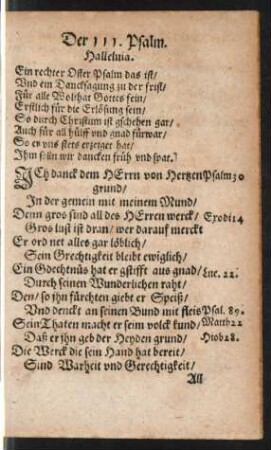 Der 111. Psalm.
Halleluia.
Ein rechter Oster Psalm das ist/
Vnd ein Dancksagung zu der frist/
Für alle Wolthat Gottes fein/
Erstlich für die Erlösung sein/
So durch Christum ist gschehen gar/
Auch für all hülff vnd gnad fürwar/
So er vns stets erzeiget hat/
Ihm solln wir dancken früh vnd spat.
ICh danck dem HErrn von Hertzen Psalm 30
grund/
In der gemein mit meinem Mund/
Denn gros sind all des HErren werck/ Exodi 14
Gros lust ist dran/ wer darauf merckt
Er ord net alles gar löblich/
Sein Grechtigkeit bleibt ewiglich/
Ein Gdechtnüs hat er gstifft aus gnad/ Luc. 22.
Durch seinen Wunderlichen raht/
Den/ so ihn fürchten giebt er Speiß/
Vnd denckt an seinen Bund mit fleis Psal. 89.
Sein Thaten macht er seim volck kund/ Matth 22
Daß er ihn geb der Heyden grund/ Hiob 28.
Die Werck die sein Hand hat bereit/
Sind Warheit vnd Gerechtigkeit/
All